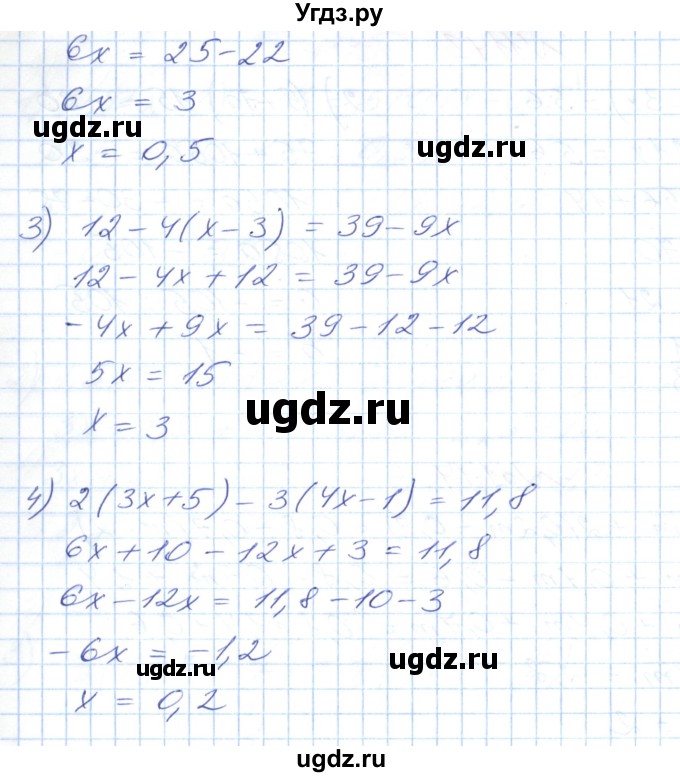 Угдз.ру
6x = 25-22
6x = 3
ugdz.ru
ugdz.ru
x = 0,5
3) 12 - 4(x - 3) = 39 - 9x
12 - 4x + 12 = 39 - 9x
- 4x + 9x = 39 - 12 - 12
5x = 15
ugdz.ru
x = 3
4) 2(3x+5) - 3(4x-1) = 11,8
6x + 10 - 12x + 3 = 11,8
6x - 12x = 11,8 - 10 - 3
- 6x = -1,2
ugdz.ru
ugdz.ru
x = 0,2